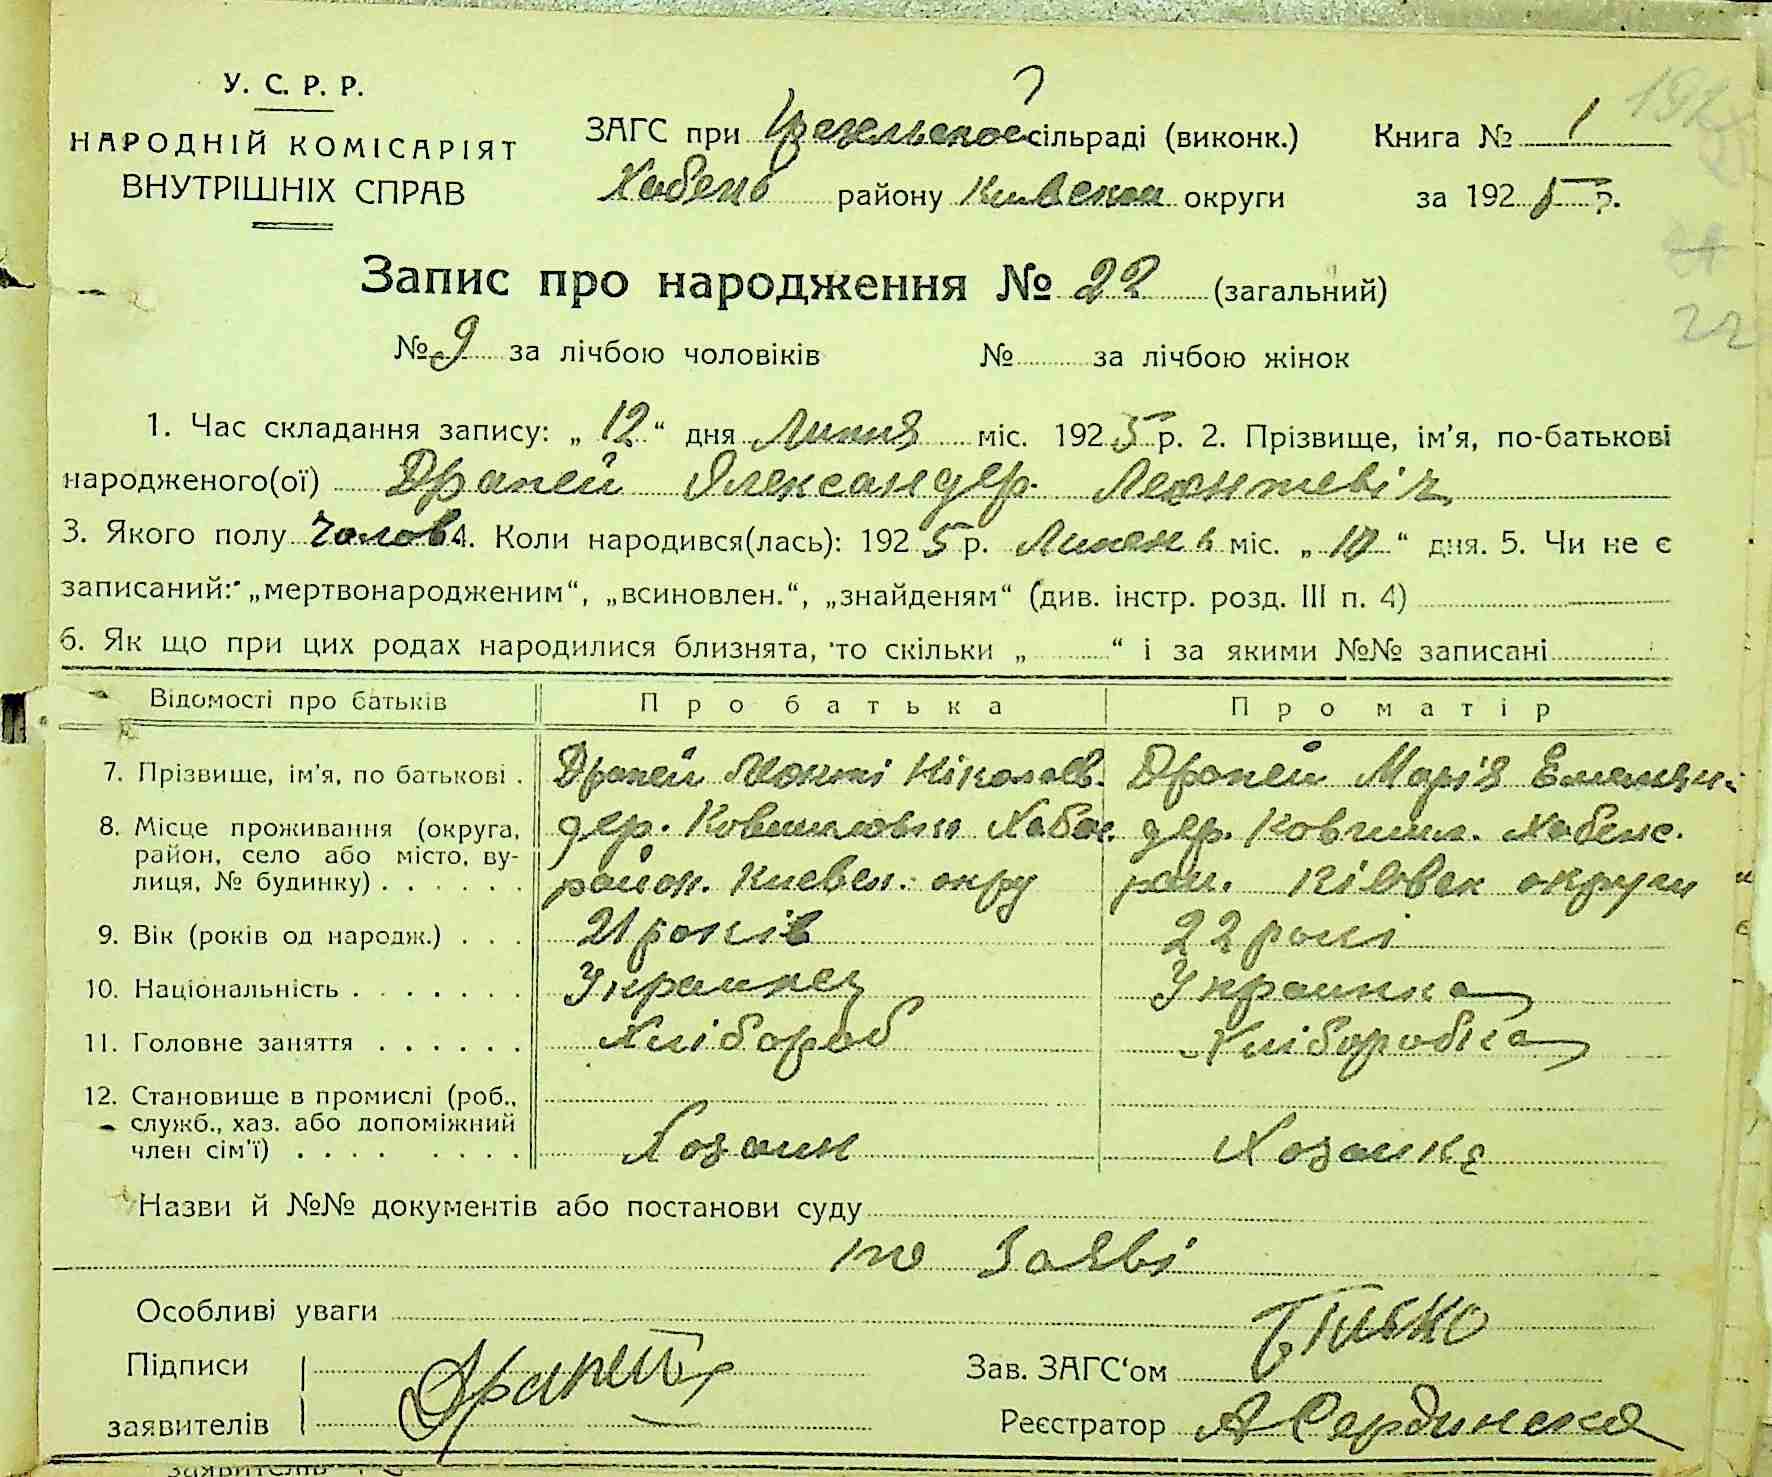 У. С. Р. Р.
НАРОДНІЙ КОМІСАРІЯТ
ВНУТРІШНІХ СПРАВ
ЗАГС при сільраді (виконк.) Книга № 1
Хабенс району Київской округи за 1925 р.
22
Запис про народження № 22 (загальний)
№ 9 за лічбою чоловіків № за лічбою жінок
1. Час складання запису: „ 12 “ дня Липня міс. 1925 р. 2. Прізвище, ім’я, по-батькові
народженого(ої) Драпей Олександер Леонтевіч
3. Якого полу Чолов 4. Коли народився(лась): 1925 р. Липень міс. „ 10 “ дня. 5. Чи не є
записаний: „мертвонародженим“, „всиновлен.“, „знайденям“ (див. інстр. розд. III п. 4)
6. Як що при цих родах народилися близнята, то скільки „ “ і за якими №№ записані
Відомості про батьків Про батька Про матір
7. Прізвище, ім’я, по батькові . Драпей Леонті Ніколаєв. Драпей Марія
8. Місце проживання (округа, район, село або місто, вулиця, № будинку) . . . . . .
дер. Хабен. дер. Ковшил. Хабенс.
район. Киевск. окру рай. Київск округи
9. Вік (років од народж.) . . . 21 років 22 рокі
10. Національність . . . . . . . Украинец Украинка
11. Головне заняття . . . . . . Хлібороб Хліборобка
12. Становище в промислі (роб., служб., хаз. або допоміжний член сім’ї) . . . . . . . .
Хозаин Хозаика
Назви й №№ документів або постанови суду
по Заяві
Особливі уваги
Підписи
заявителів Драпей
Зав. ЗАГС‘ом
Реєстратор А Сердинска